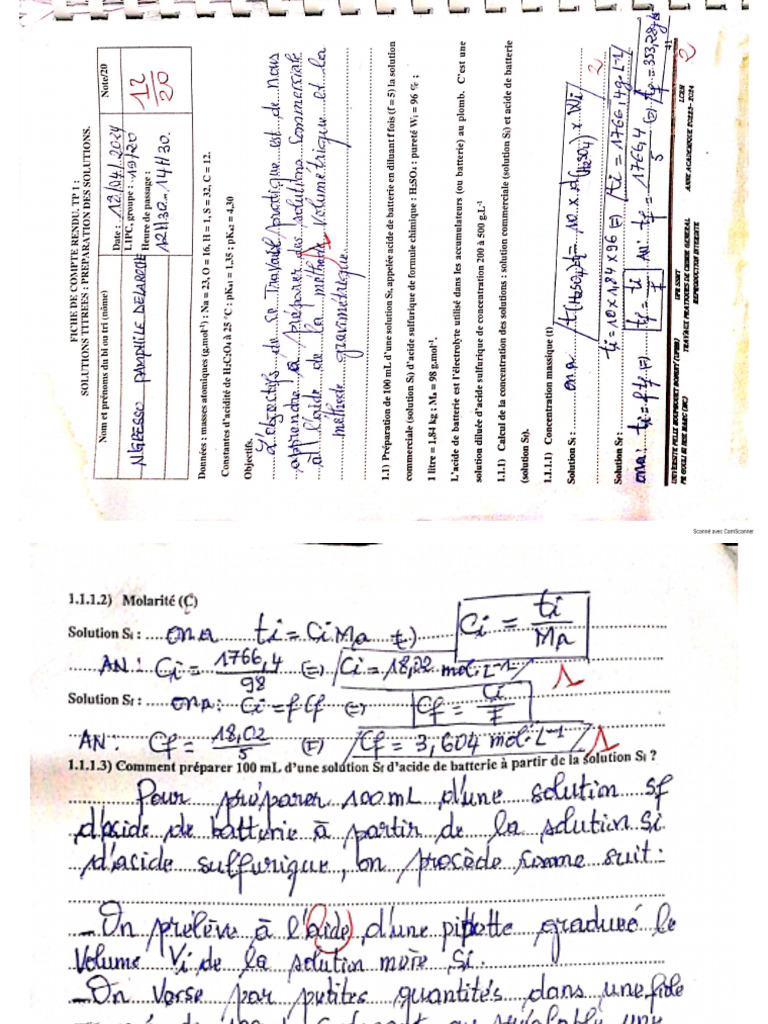 FICHE DE COMPTE RENDU. TP 1 :
SOLUTIONS TITREES : PREPARATION DES SOLUTIONS.
Nom et prénoms du bi ou tri (nôme)
N'GBESSO PAMPHILE DELAROCHE
Date : 12/04/2024
L1PC, groupe : 19/20
Heure de passage :
12H30...14H30.
Note/20
12/20
Données : masses atomiques (g.mol⁻¹) : Na = 23, O = 16, H = 1, S = 32, C = 12.
Constantes d'acidité de H₂C₂O₄ à 25 °C : pKₐ₁ = 1,35 ; pKₐ₂ = 4,30
Objectifs.
L'objectifs de ce Travail pratique est de nous
apprendre à préparer des solutions commerciale
à l'aide de la méthode volumétrique et la
méthode gravimétrique.
1.1) Préparation de 100 mL d'une solution Sf, appelée acide de batterie en diluant f fois (f = 5) la solution
commerciale (solution Si) d'acide sulfurique de formule chimique : H₂SO₄ : pureté Wi = 96 % ;
1 litre = 1,84 kg ; Ma = 98 g.mol⁻¹.
L'acide de batterie est l'électrolyte utilisé dans les accumulateurs (ou batterie) au plomb. C'est une
solution diluée d'acide sulfurique de concentration 200 à 500 g.L⁻¹
1.1.1) Calcul de la concentration des solutions : solution commerciale (solution Si) et acide de batterie
(solution Sf).
1.1.1.1) Concentration massique (t)
Solution Si : ona t(H₂SO₄)i = 10 × d(H₂SO₄) × Wi
ti = 10 × 1,84 × 96 (=) ti = 1766,4 g.L⁻¹
2
Solution Sf :
ona: ti = f tf (=) tf = ti/f AN: tf = 1766,4/5 (=) tf = 353,28 g/L
UNIVERSITE FELIX HOUPHOUET BOIGNY (UFHB)
UFR SSMT
TRAVAUX PRATIQUES DE CHIMIE GENERAL
REPRODUCTION INTERDITE
LCRM
ANNE ACADEMIQUE 2023-2024
2
Scanné avec CamScanner
1.1.1.2) Molarité (C)
Solution Si : ona ti = Ci Ma (=) Ci = ti/Ma
AN: Ci = 1766,4/98 (=) Ci = 18,22 mol.L⁻¹ 1
Solution Sf : ona: Ci = f Cf (=) Cf = Ci/F
AN: Cf = 18,02/5 (=) Cf = 3,604 mol.L⁻¹ 1
1.1.1.3) Comment préparer 100 mL d'une solution Sf d'acide de batterie à partir de la solution Si ?
Pour préparer 100mL d'une solution Sf
d'acide de batterie à partir de la solution Si
d'acide sulfurique, on procède comme suit:
_On prélève à l'aide, d'une pipette gradué le
Volume Vi de la solution mère Si.
_On Verse par petites quantités dans une fiole